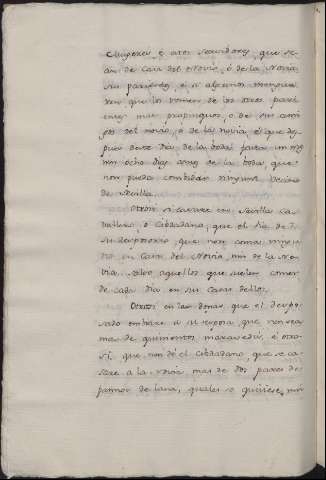 Mugeres, è otros servidores, que se-
an de Casa del Novio, ó de la Novia,
sus parientes, è si algunos menguа-
ren que los tomen de los otros parï-
entes mas propinquos, ó de sus ami-
gos del novio, ó de la novia, è que des-
pues deste dia de la boda fasta un mes
nin ocho dias antes de la boda que
non pueda combidar ninguno Vecino
de Sevilla.
Otrosi si casare en Sevilla Ca-
vallero, ó Cibdadano, que el dia de
su desposorio, que non coma ningu-
no en Casa del Novio, nin de la No-
via, salvo aquellos que suelen comer
de cada dia en sus Casas dellos.
Otrosi en las donas, que el despo-
sado embiare à su esposa, que non sea
mas de quinientos maravedis, è otro-
si, que non dè el Cibdadano, que se ca-
sare à la Novia, mas de dos pares de
pannos de lana, quales se quisiere, nin